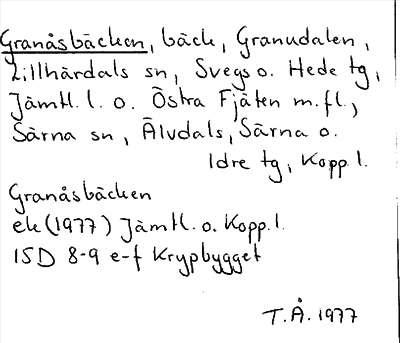 Granåsbäcken, bäck, Granudalen,
Lillhärdals sn, Svegs o. Hede tg,
Jämtl. l. o. Östra Fjäten m.fl.,
Särna sn, Älvdals, Särna o.
Idre tg, Kopp.l.
Granåsbäcken
ek(1977) Jämtl. o. Kopp.l.
ISD 8-9 e-f Krypbygget
T.Å. 1977